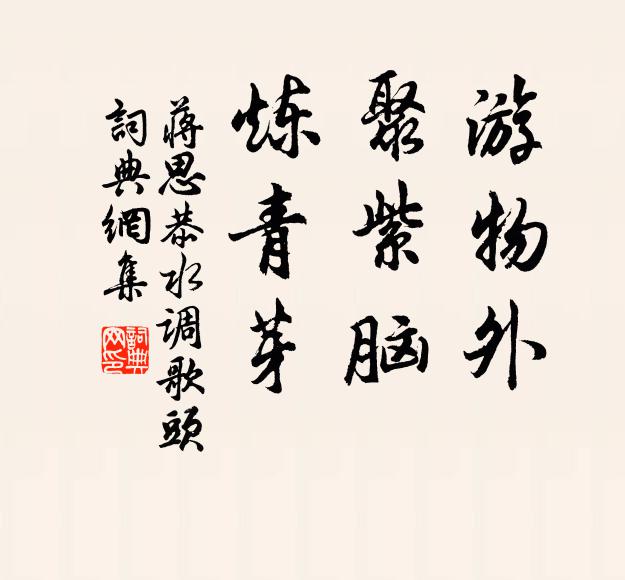 游物外
聚紫脑
炼青芽
蒋思恭水调歌頭
詞典網集
詞典
网印